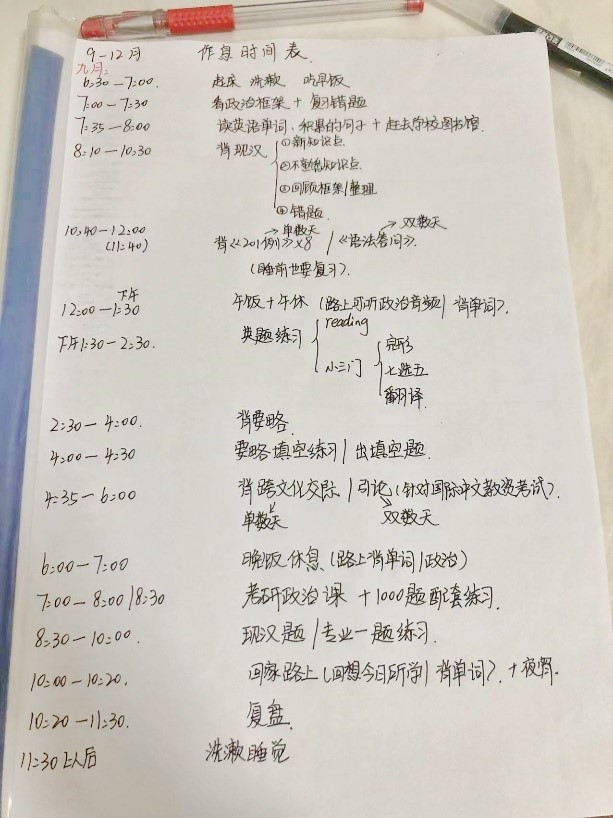 9-12月 作息时间表.
九月:
6:30-7:00. 起床 洗漱 吃早饭
7:00-7:30 看政治框架+复习错题
7:35-8:00 读英语单词、积累的句子+赶去学校图书馆.
8:10-10:30 背现汉 ①新知识点
②不熟悉知识点
③回顾框架/整理
④错题.
单数天 双数天
10:40-12:00 背《201例》×8 /《语法答问》.
(11:40) (睡前也要复习).
下午
12:00-1:30 午饭+午休(路上可听政治音频/背单词).
下午1:30-2:30. 英题练习 reading
小三门 完形
七选五
翻译.
2:30-4:00. 背要略.
4:00-4:30 要略填空练习/出填空题.
4:35-6:00 背跨文化交际/引论(针对国际中文教资考试).
单数天 双数天
6:00-7:00 晚饭休息(路上背单词/政治)
7:00-8:00/8:30 考研政治课+1000题配套练习.
8:30-10:00. 现汉题/专业一题练习.
10:00-10:20. 回家路上(回想今日所学/背单词).+夜宵.
10:20-11:30. 复盘.
11:30以后 洗漱睡觉